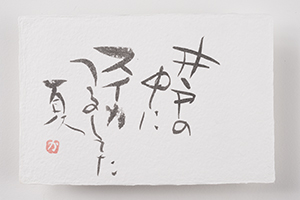 井戸の
中に
スイカ
つるしてた
夏
か